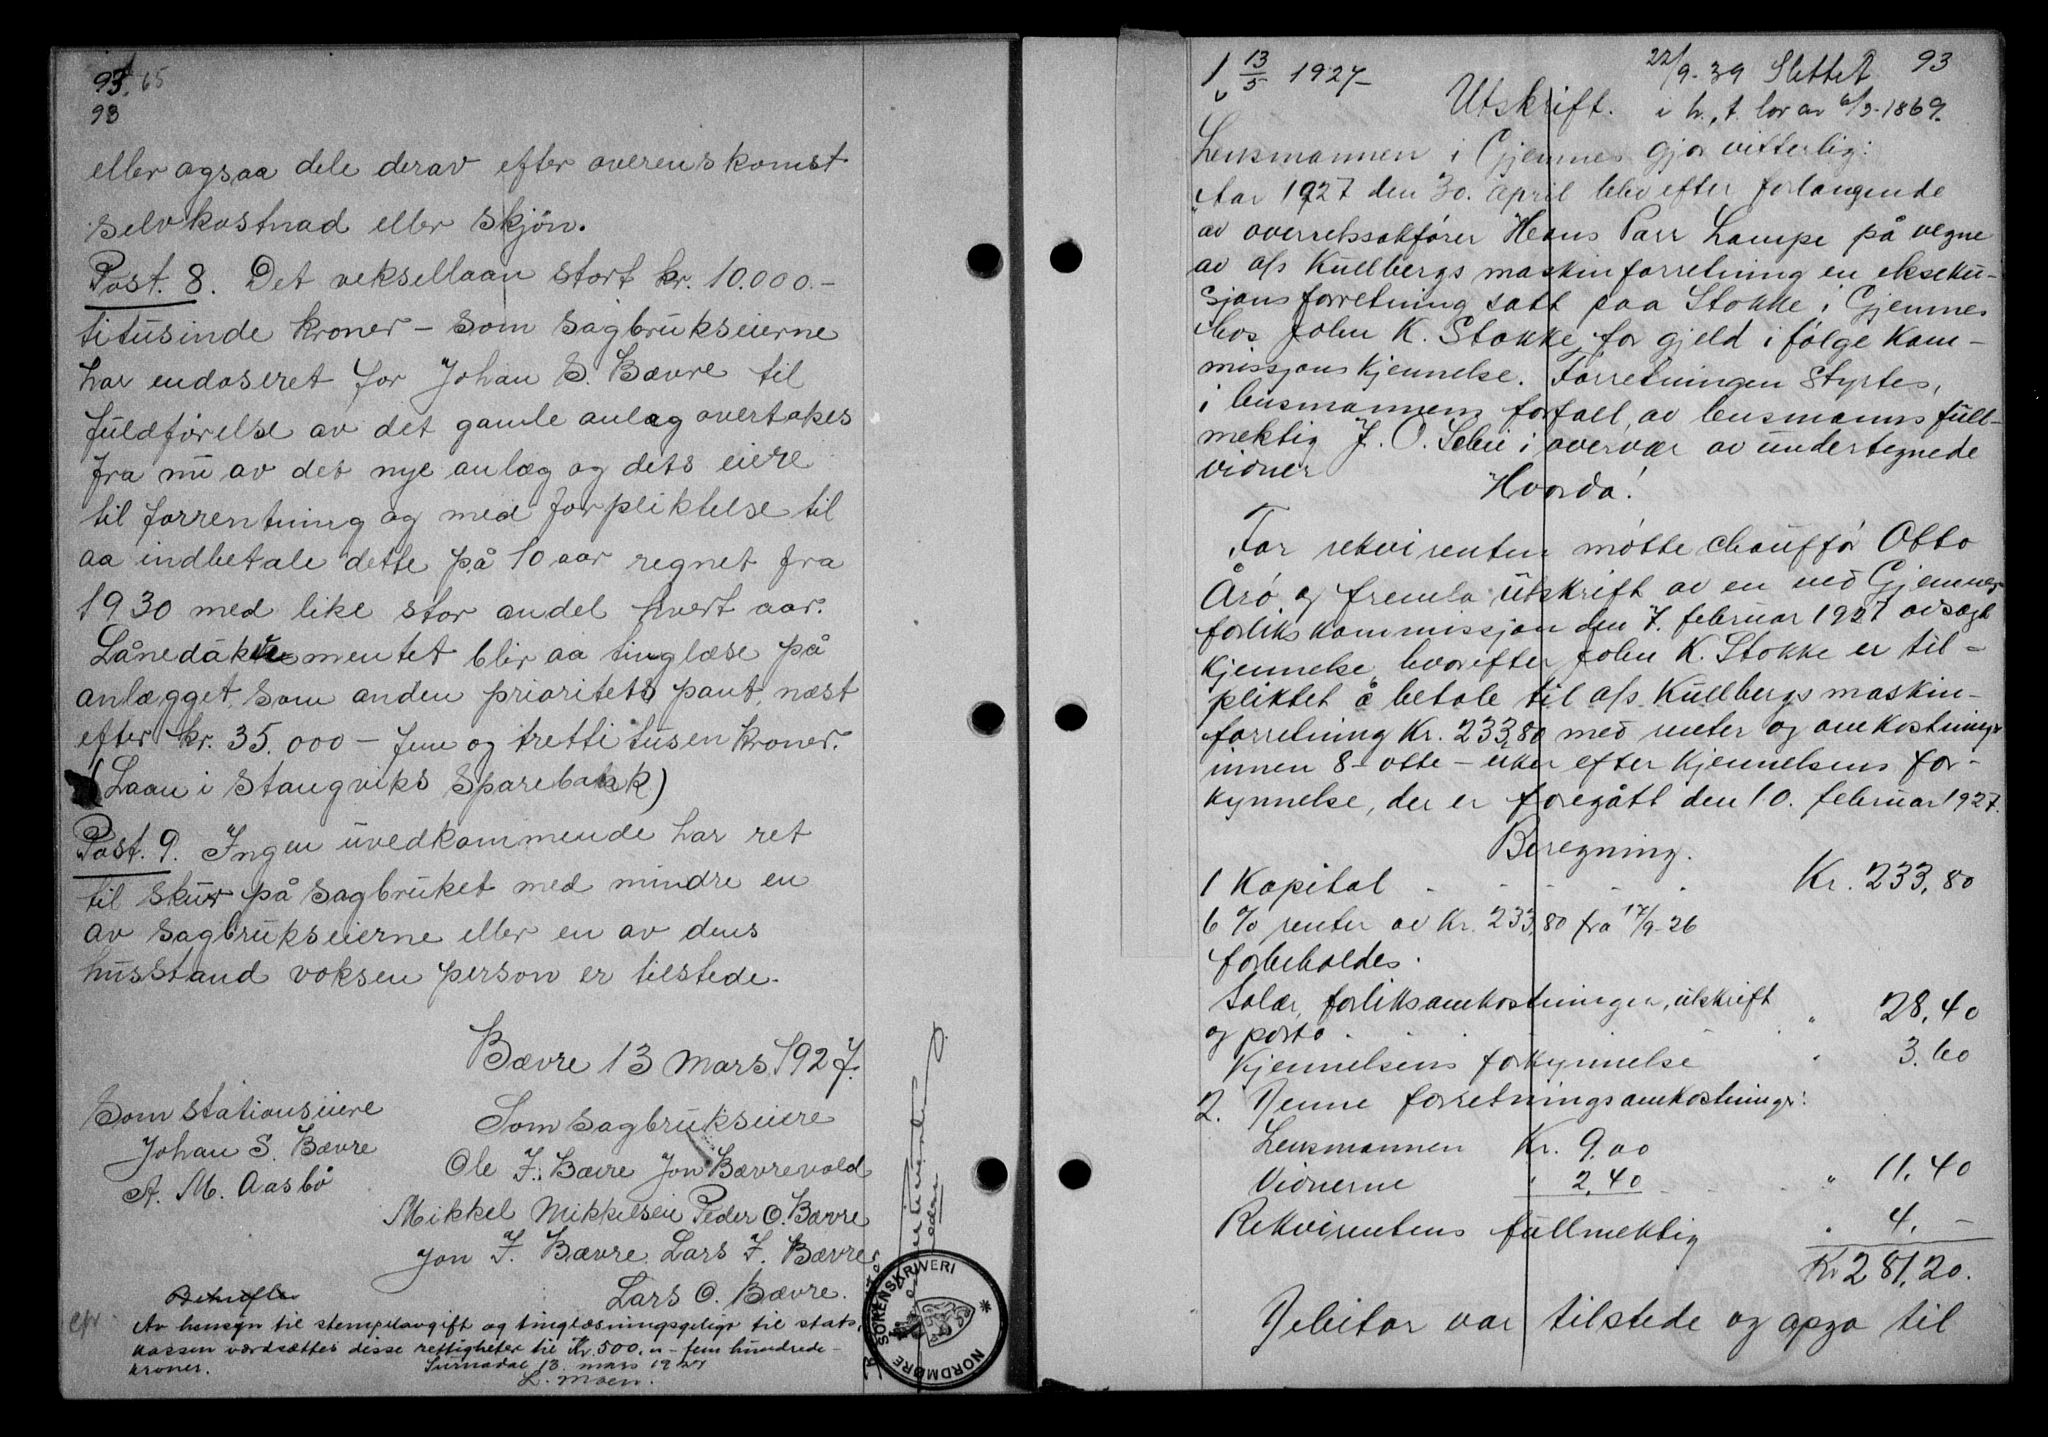 93. 65
93
eller ogsaa dele derav efter overenskomst
selvkostnad eller skjøn.
Post. 8. Det veksellaan stort kr. 10.000.-
titusinde kroner - som sagbrukseierne
har endoseret for Johan S. Bævre til
fuldførelse av det gamle anlæg overtakes
fra nu av det nye anlæg og dets eiere
til forrentning og med forpliktelse til
aa indbetale dette på 10 aar regnet fra
1930 med like stor andel hvert aar.
Lånedokumentet blir aa tinglæse på
anlægget som anden prioritets pant, næst
efter kr. 35.000 - fem og tretti tusen kroner.
(Laan i Stangviks Sparebank)
Post. 9. Ingen uvedkommende har ret
til skur på sagbruket med mindre en
av sagbrukseierne eller en av dens
husstand voksen person er tilstede.
Bævre 13 mars 1927.
Som stationseiere
Johan S. Bævre
A. M. Aasbø
Som sagbrukseiere
Ole J. Bævre Jon Bævrevold
Mikkel Mikkelsen Peder O. Bævre
Jon J. Bævre Lars J. Bævre
Lars O. Bævre.
Av hensyn til stempelavgift og tinglæsningsgebyr til stats-
kassen værdsættes disse rettigheter til kr. 500,- fem hundrede-
kroner.
Surnadal 13. mars 1927
L. Moen.
SORENSKRIVERI
NORDMØRE
1 13/5 1927
22/9-39 Slettet 93
Utskrift. i h. t. lov av 6/3-1869.
Lensmannen i Gjemnes gjør vitterlig:
Aar 1927 den 30. april blev efter forlangende
av overretssakfører Hans Parr Lampe på vegne
av a/s Kullbergs maskinforretning en ekseku-
sjonsforretning satt paa Stokke i Gjemnes
hos John K. Stokke for gjeld i følge kom-
missjonskjennelse. Forretningen styrtes,
i lensmannens forfall, av lensmanns full-
mektig J. O. Sehie i overvær av undertegnede
vidner
Hvorda!
For rekvirenten møtte chauffør Otto
Årø og fremla utskrift av en ved Gjemnes
forlikskommissjon den 7. februar 1927 avsagt
kjennelse, hvorefter John K. Stokke er til-
pliktet å betale til a/s Kullbergs maskin-
forretning Kr. 233,80 med renter og omkostninger
innen 8 - otte - uker efter kjennelsens for-
kynnelse, der er foregått den 10. februar 1927.
Beregning.
1 Kapital Kr. 233,80
6 % renter av Kr. 233,80 fra 17/9-26
forbeholdes.
Salær, forliksomkostninger, utskrift
og porto " 28,40
Kjennelsens forkynnelse " 3.60
2. Denne forretnings omkostninger:
Lensmannen Kr. 9.00
Vidnerne " 2,40 " 11,40
Rekvirentens fullmektig " 4.-
Kr 281,20.
Debitor var tilstede og opga til